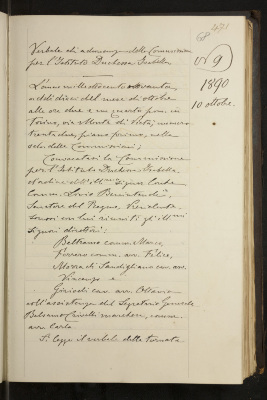 Verbale di adunanza della Commissione
per l'Istituto Duchessa Isabella
L'anno milleottocento novanta
addì dieci del mese di ottobre
alle ore due e un quarto pom. in
Torino, via Monte di Pietà, numero
trenta due, piano primo, nella
sala delle Commissioni;
Convocatasi la Commissione
per l'Istituto Duchessa Isabella,
d'ordine dell'ill.mo Signor Conte
Comm.
Senatore del Regno, Presidente,
sonosi con lui riuniti gl'ill.mi
Signori direttori:
Beltramo comm. Marco,
Ferrero comm. avv. Felice,
Morra di Sandigliano cav. avv.
Vincenzo e
Giriodi cav. avv. Ottavio
coll'assistenza del Segretario Generale
Balsamo Crivelli marchese, comm.
avv. Carlo
Si legge il verbale della tornata
N 9
1890
10 ottobre